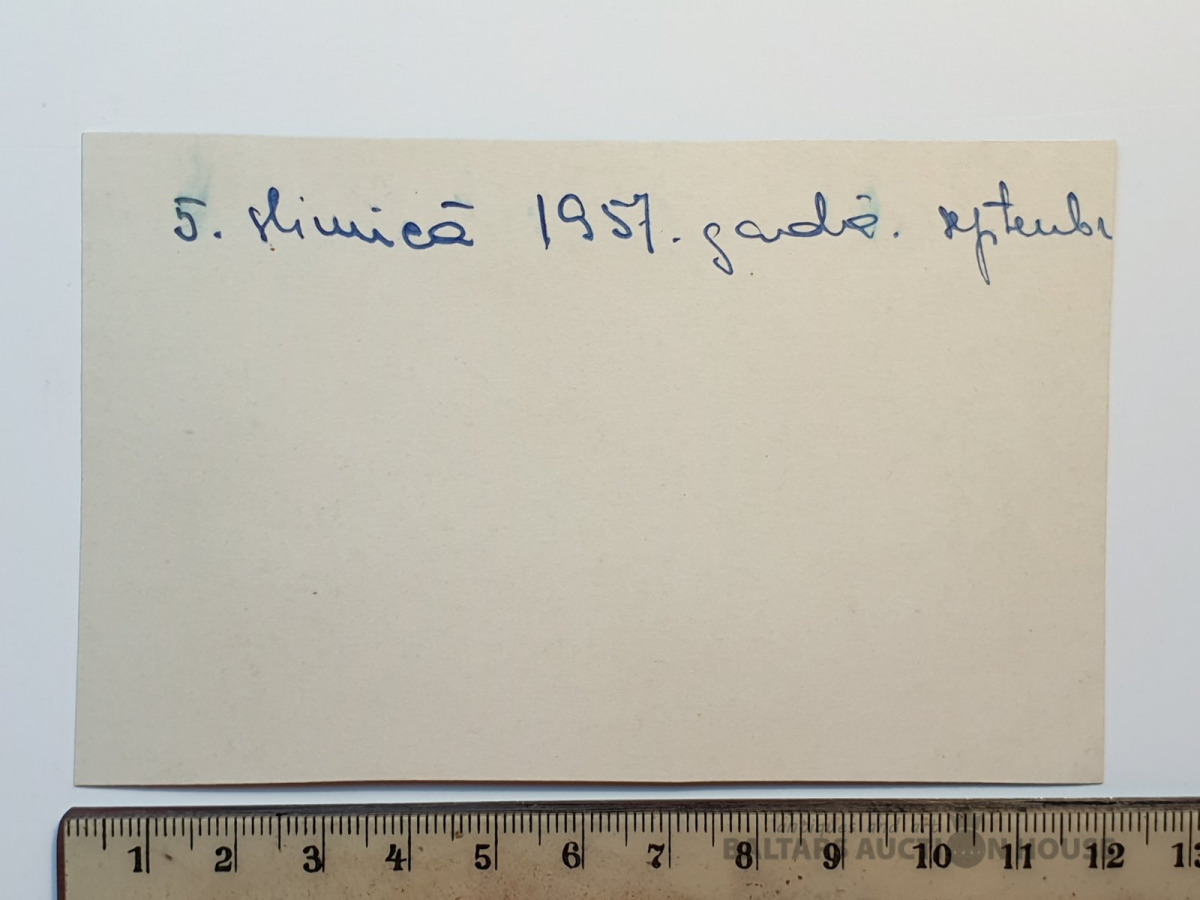 5. slimicā 1957. gadā. septembr
1 2 3 4 5 6 7 8 9 10 11 12 13
antiques and art
BALTARS AUCTION HOUSE